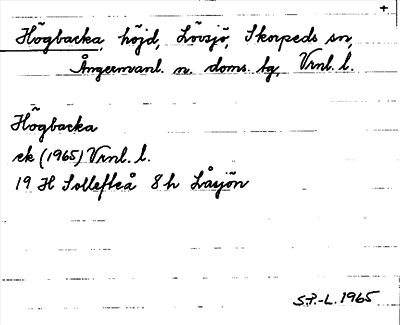 +
Högbacka, höjd, Lövsjö, Skorpeds sn,
Ångermanl. n. doms. tg, Vrnl. l.
Högbacka
ek (1965) Vrnl. l.
19 H Sollefteå 8 h Låsjön
S.P.-L. 1965